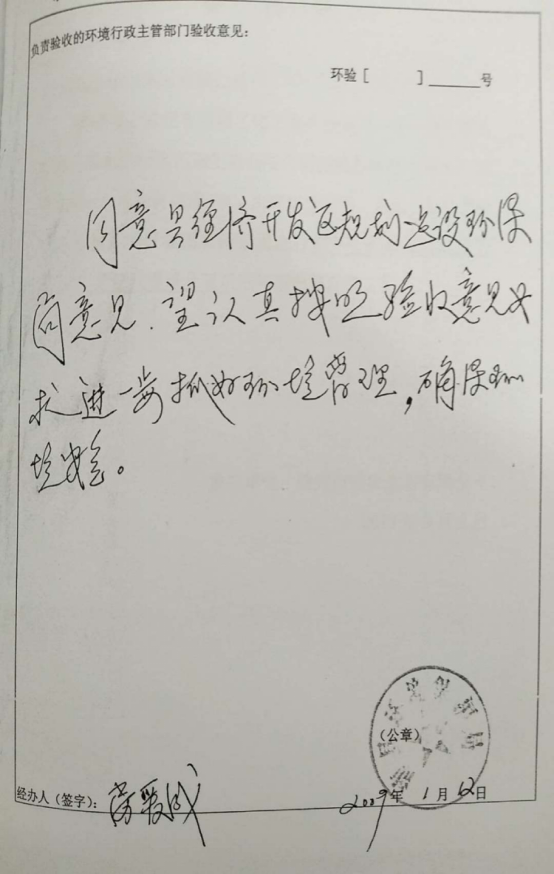 负责验收的环境行政主管部门验收意见：
环验［　　］＿＿＿号
同意县经济开发区规划建设环保
局意见．望认真按照验收意见要
求进一步抓好环境管理，确保环
境安全。
（公章）
经办人（签字）：
2009年1月12日